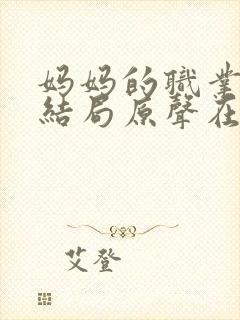 妈妈的職業
結局原聲在
艾登